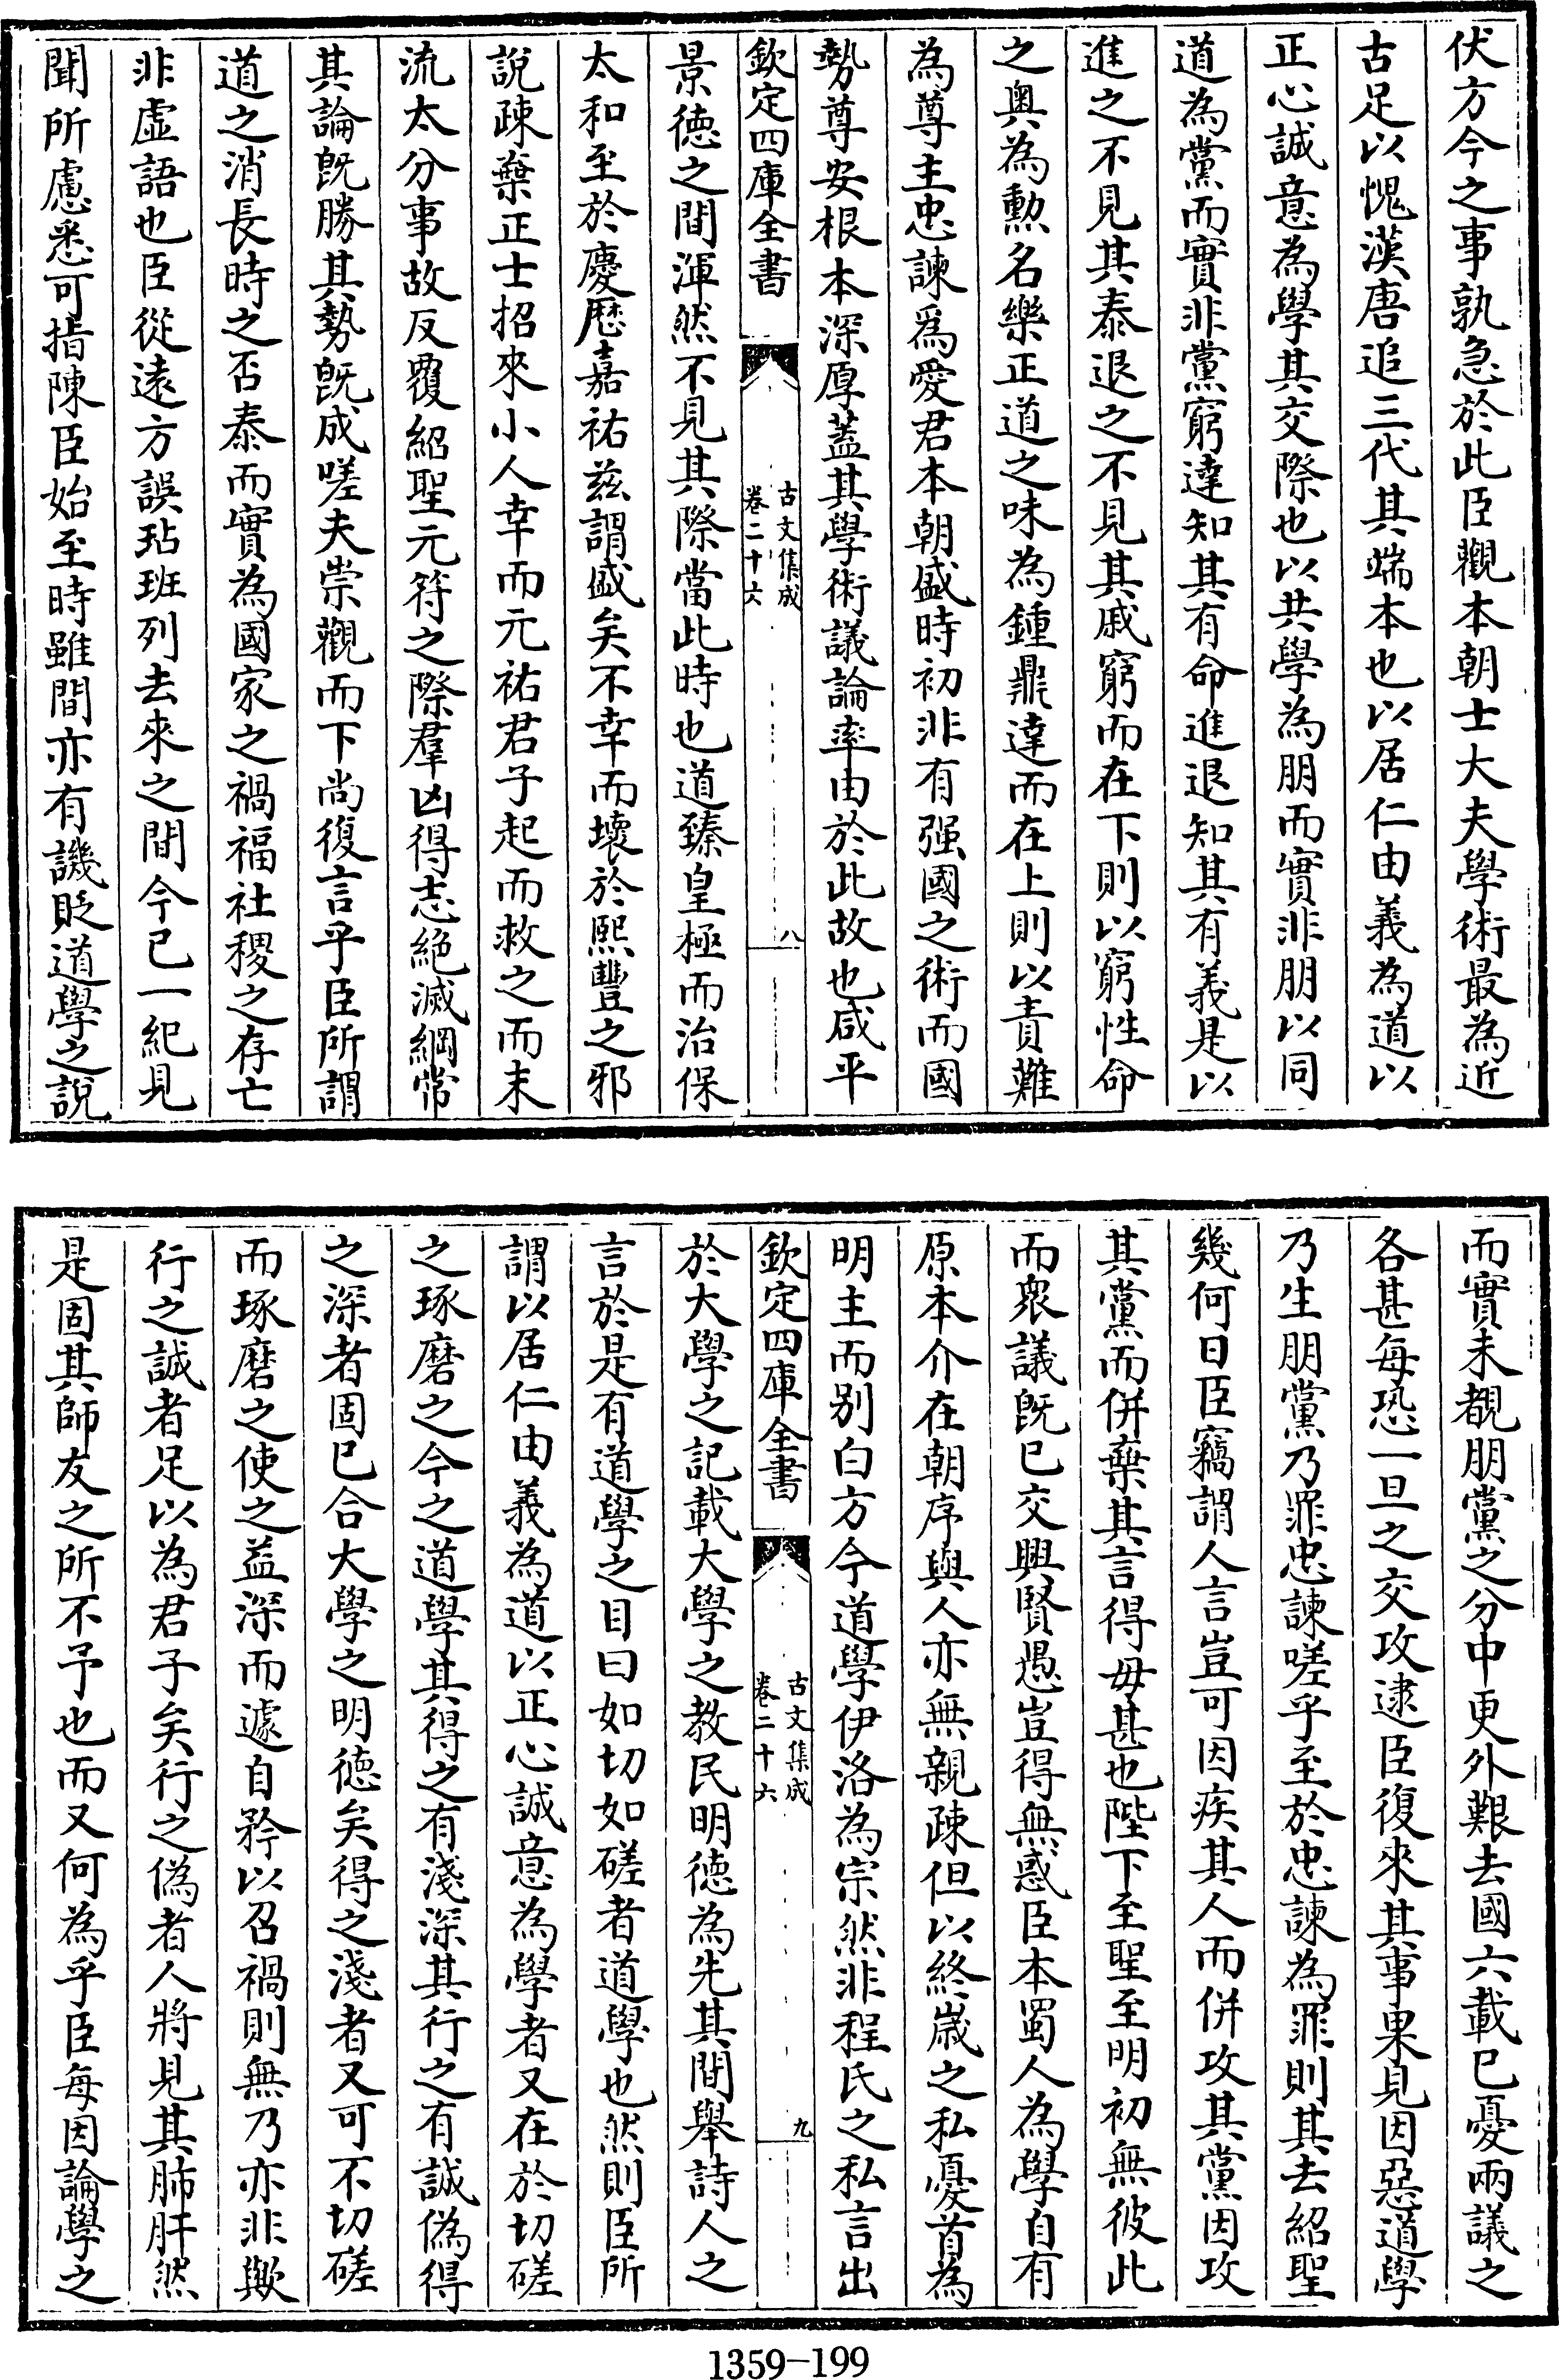 伏方今之事孰急於此臣觀本朝士大夫學術最為近
古足以愧漢唐追三代其端本也以居仁由義為道以
正心誠意為學其交際也以共學為朋而實非朋以同
道為黨而實非黨窮達知其有命進退知其有義是以
進之不見其泰退之不見其戚窮而在下則以窮性命
之奥為勲名樂正道之味為鍾鼎達而在上則以責難
為尊主忠諫爲愛君本朝盛時初非有强國之術而國
勢尊安根本深厚蓋其學術議論率由於此故也咸平
欽定四庫全書
古文集成
卷二十六
八
景徳之間渾然不見其際當此時也道臻皇極而治保
太和至於慶厯嘉祐兹謂盛矣不幸而壊於熙豐之邪
說疎棄正士招來小人幸而元祐君子起而救之而末
流太分事故反覆紹聖元符之際羣凶得志絶滅綱常
其論既勝其勢既成嗟夫崇觀而下尚復言乎臣所謂
道之消長時之否泰而實為國家之禍福社稷之存亡
非虛語也臣從遠方誤玷班列去來之間今已一紀見
聞所慮悉可指陳臣始至時雖間亦有譏貶道學之說
而實未覩朋黨之分中更外艱去國六載已憂兩議之
各甚每恐一旦之交攻逮臣復來其事果見因惡道學
乃生朋黨乃罪忠諫嗟乎至於忠諫為罪則其去紹聖
幾何日臣竊謂人言豈可因疾其人而併攻其黨因攻
其黨而併棄其言得毋甚也陛下至聖至明初無彼此
而衆議既已交興賢愚豈得無惑臣本蜀人為學自有
原本介在朝序與人亦無親疎但以終嵗之私憂首為
明主而别白方今道學伊洛為宗然非程氏之私言出
欽定四庫全書
古文集成
卷二十六
九
於大學之記載大學之教民明德為先其間舉詩人之
言於是有道學之目曰如切如磋者道學也然則臣所
謂以居仁由義為道以正心誠意為學者又在於切磋
之琢磨之今之道學其得之有淺深其行之有誠偽得
之深者固已合大學之明徳矣得之淺者又可不切磋
而琢磨之使之益深而遽自矜以召禍則無乃亦非歟
行之誠者足以為君子矣行之偽者人將見其肺肝然
是固其師友之所不予也而又何為乎臣每因論學之
1359-199